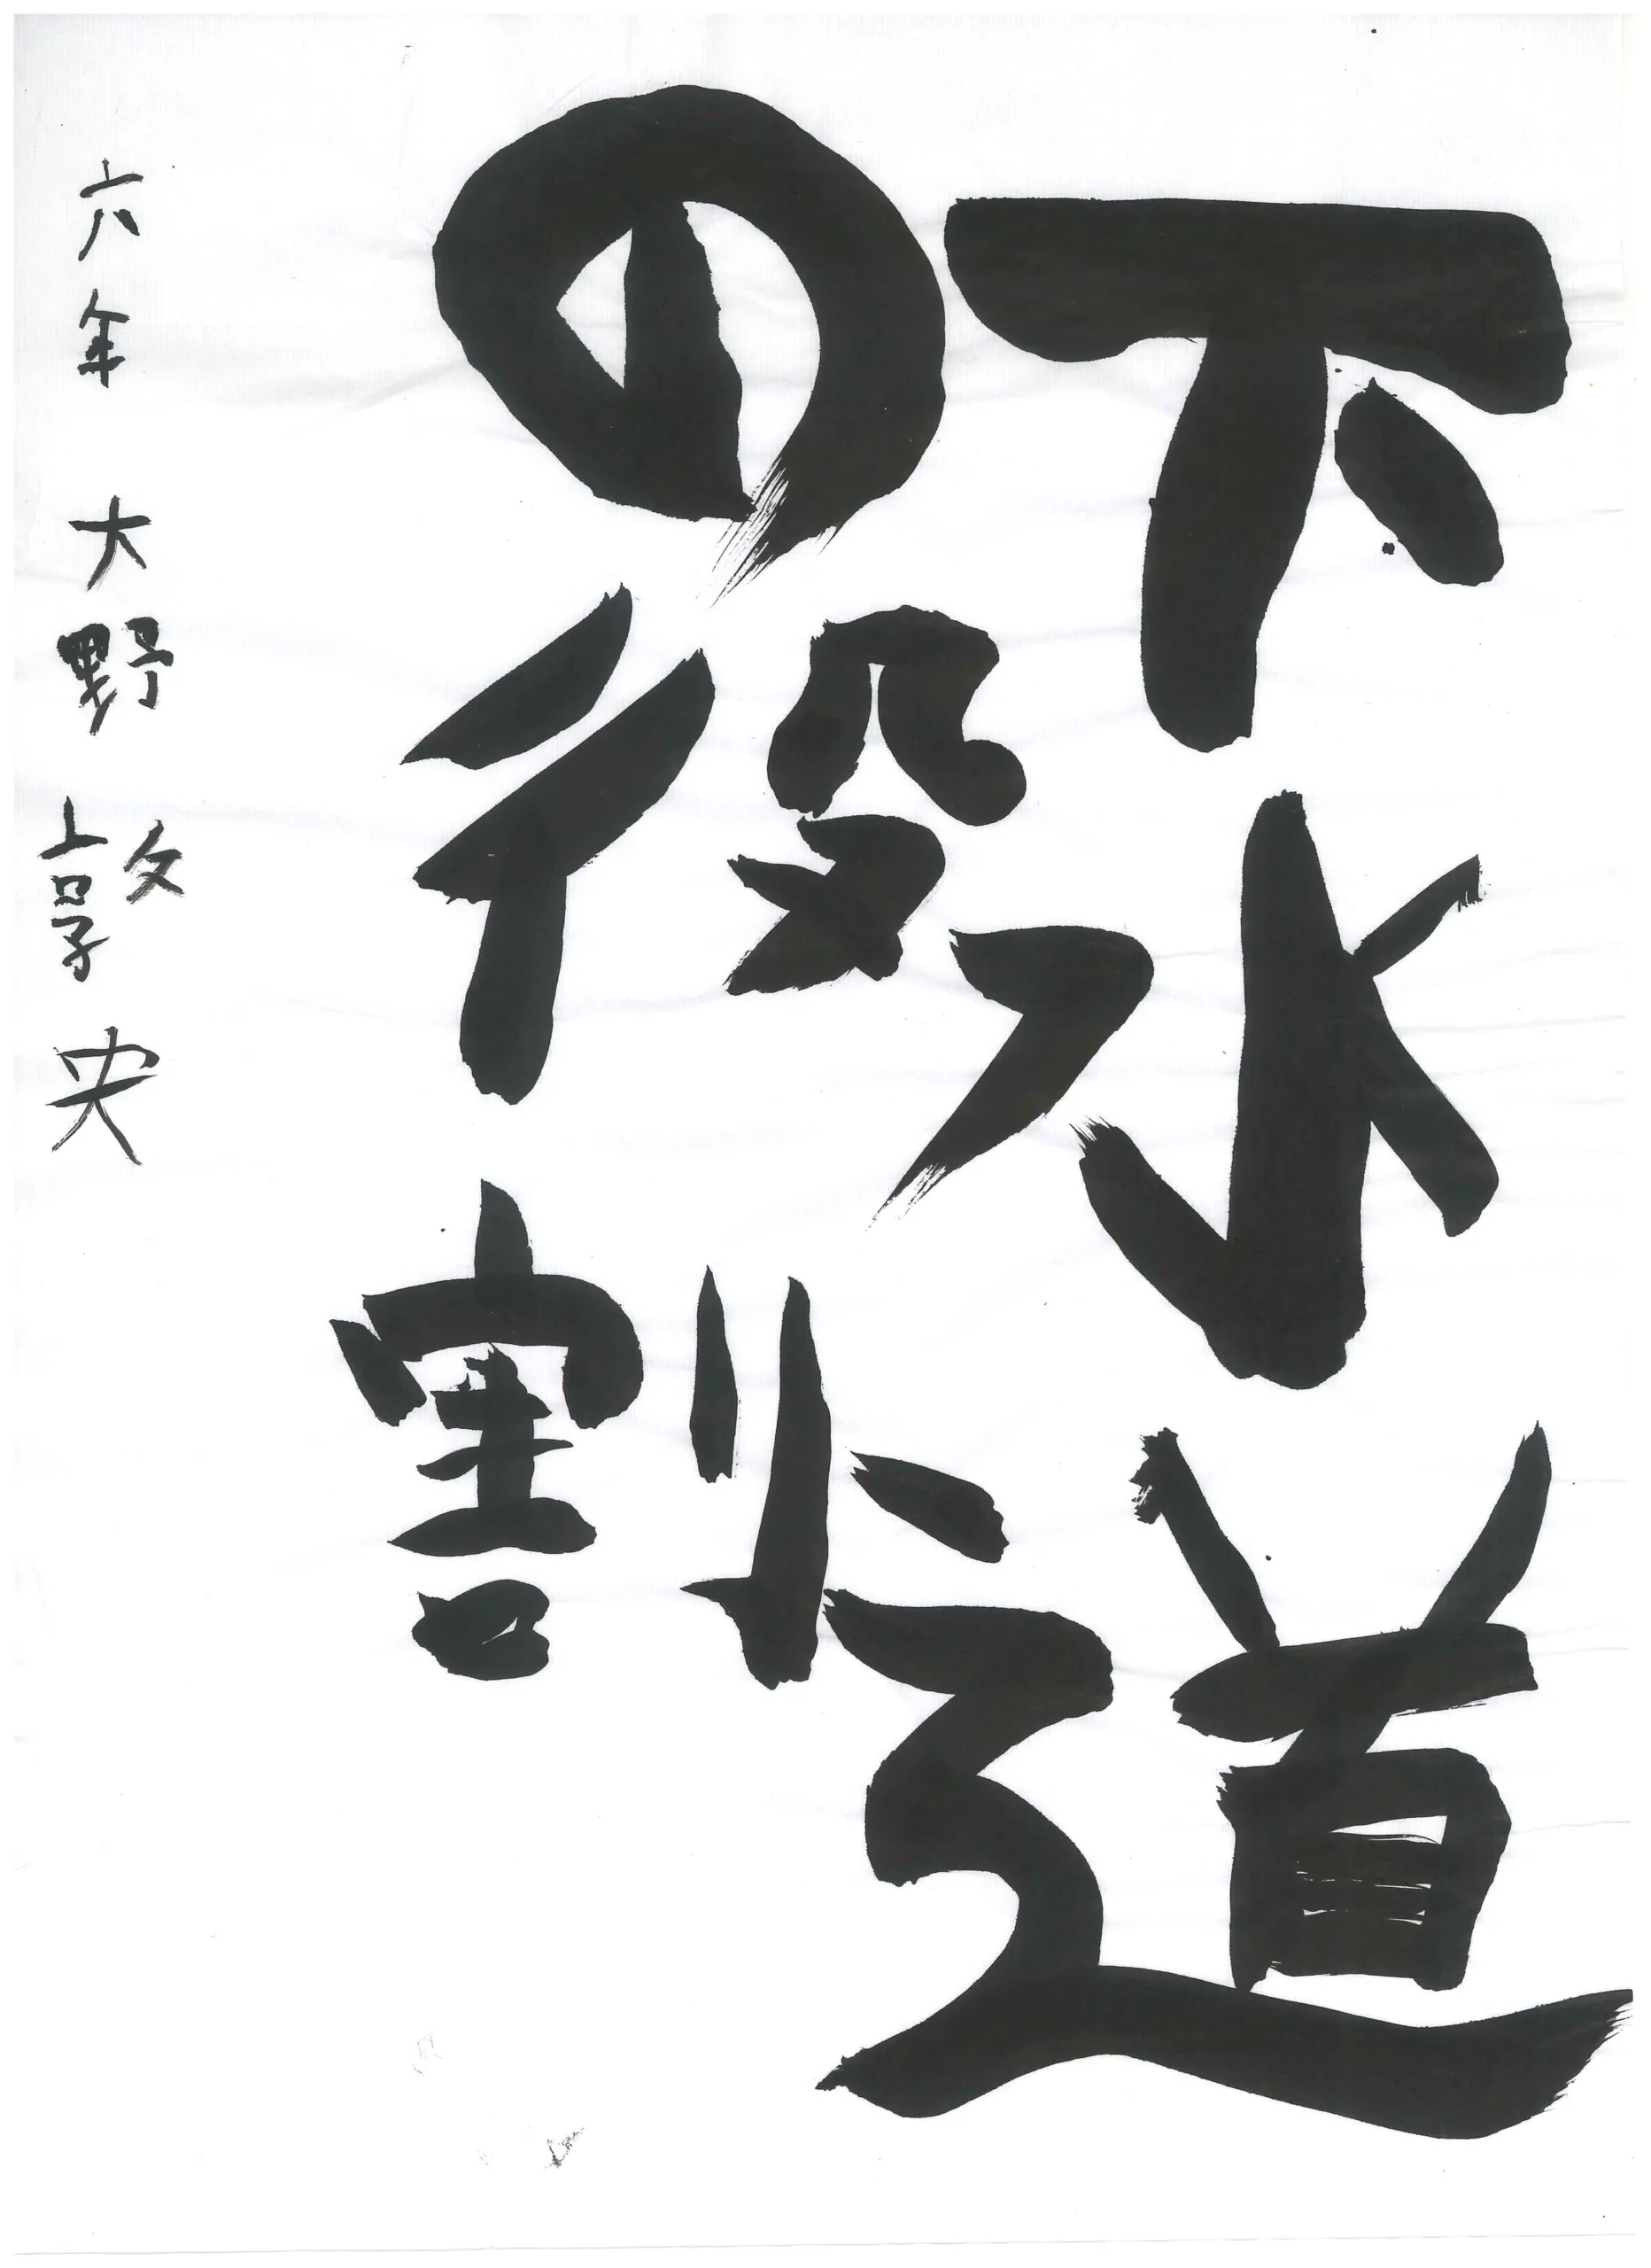 下水道
の役割
六年 大野 敦央